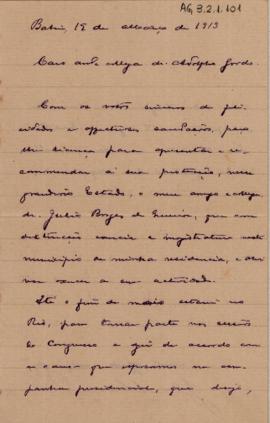 AG, 3.2.1.101
Bahia, 12 de Março de 1913
Caro am.º collega dr. Adolpho Gordo.
Com os votos sinceros de feli-
cidades e affectuosas saudações, peço
lhe licença para apresentar e re-
commendar á sua protecção, nesse
grandioso Estado, o meu amigo e collega,
dr. Julio Borges de, que com
distincção exercia a magistratura neste
municipio de minha residencia, e ahi
vae exercer a sua actividade.
Até o fim de maio estarei no
Rio, para tomar parte nas sessões
do Congresso e agir de accordo com
a causa que esposamos na cam-
panha presidencial, que desejo,